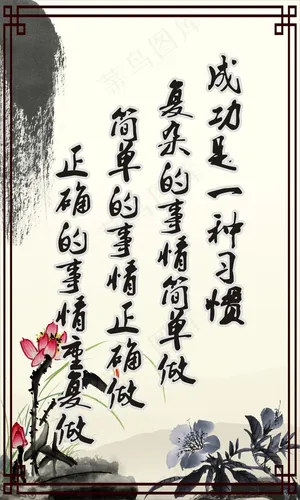 成功是一种习惯
复杂的事情简单做
简单的事情正确做
正确的事情重复做